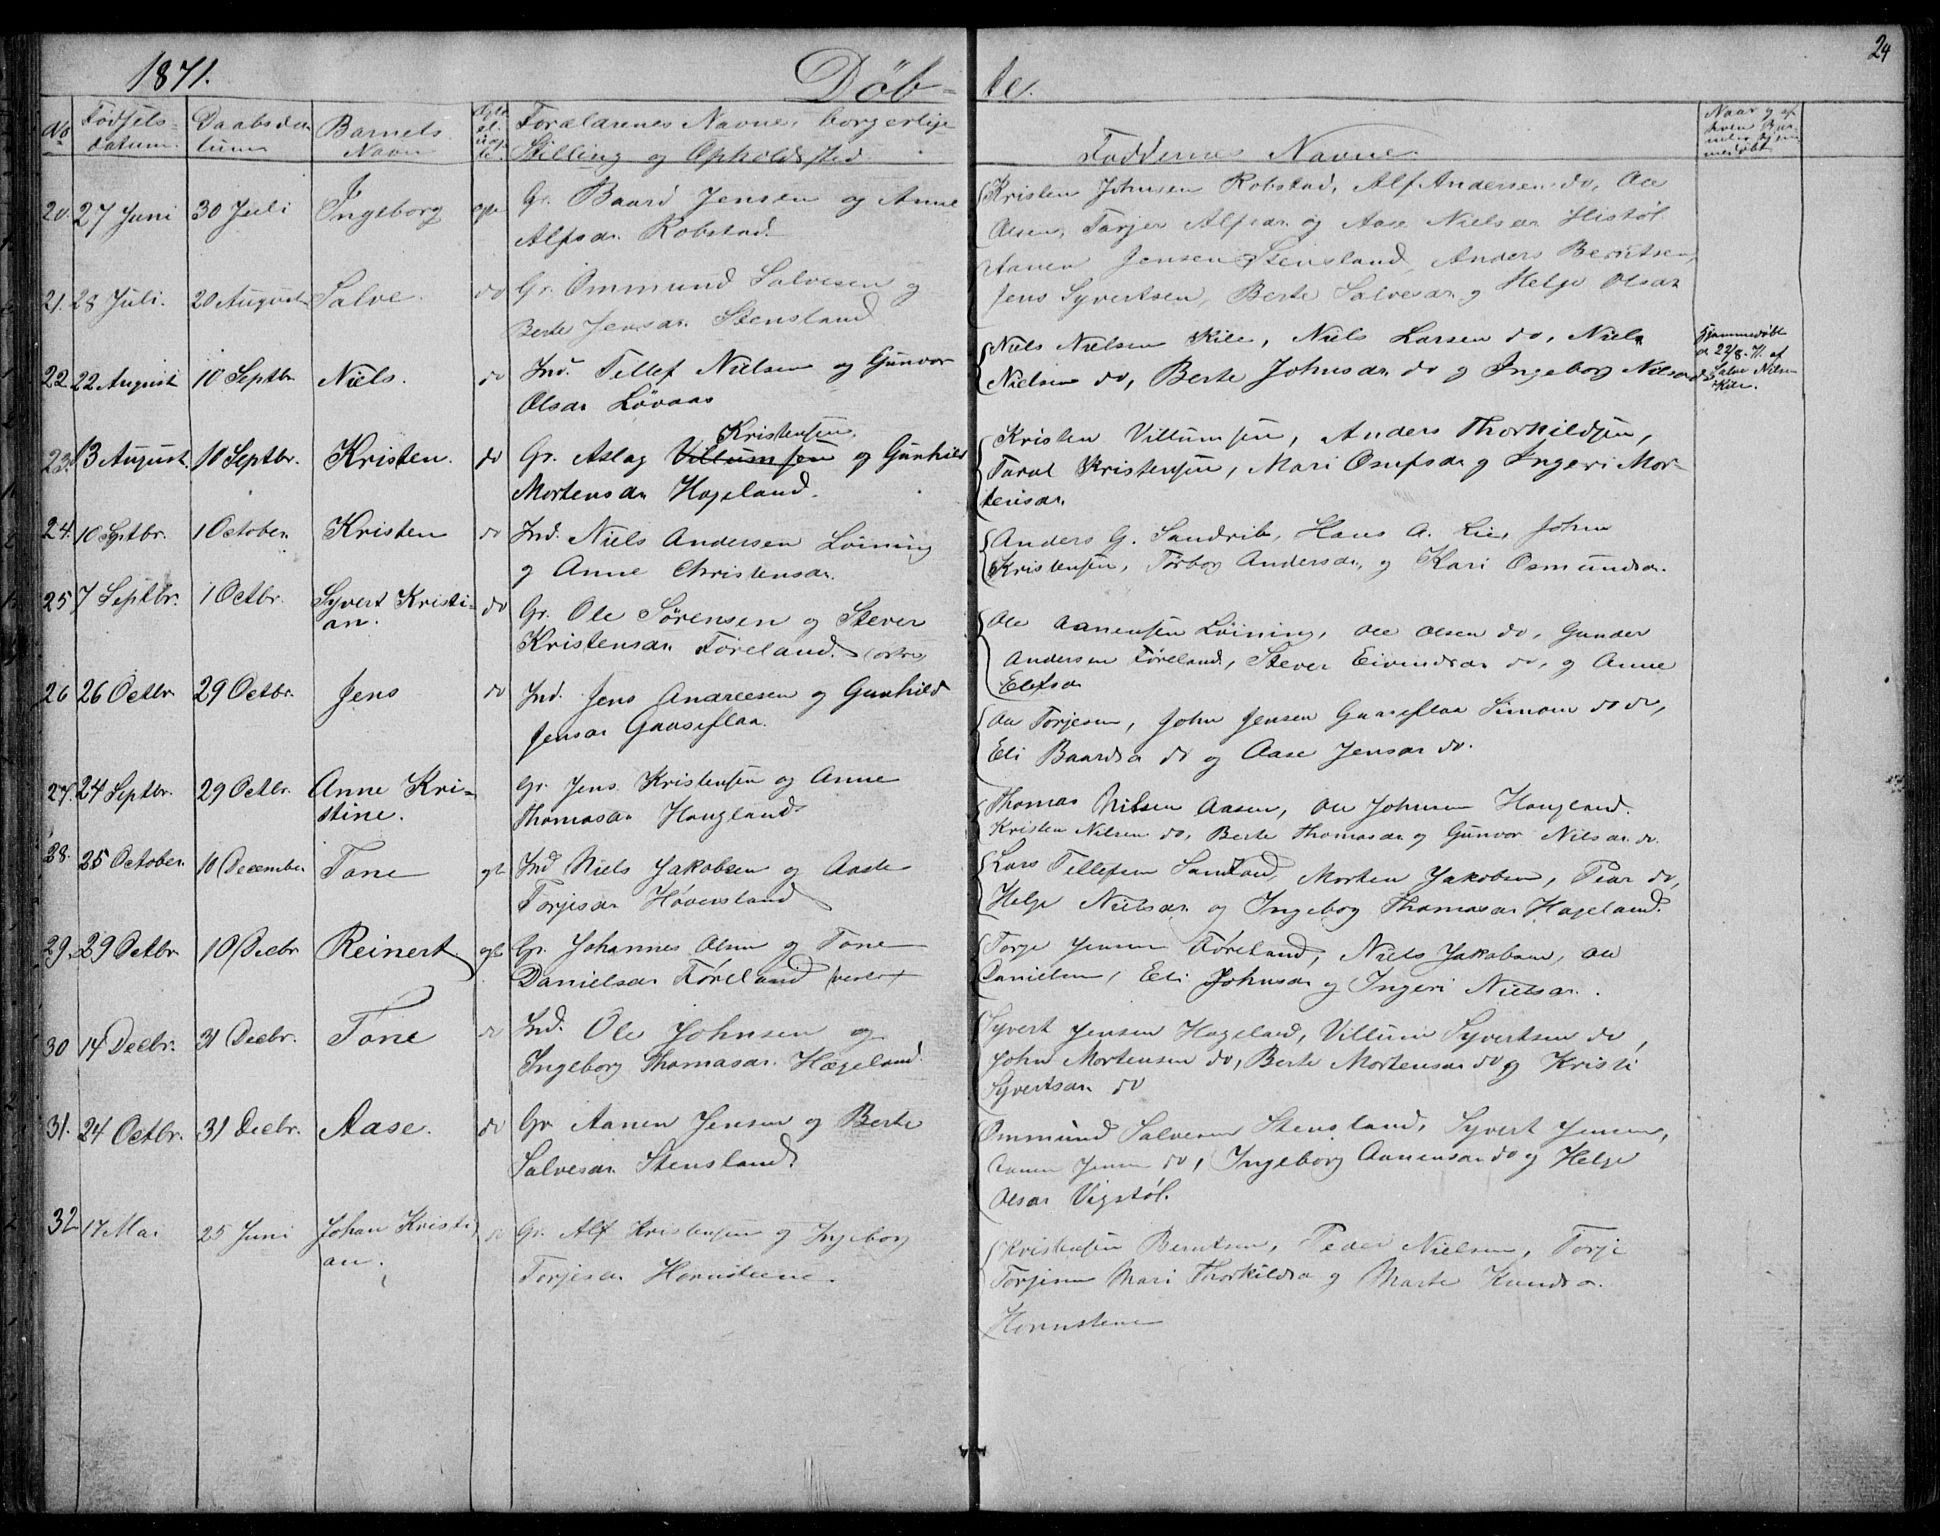 24
1871. Døbte.
No Fødsels-datum. Daabsdatum Barnets Navn Forældrenes Navne, borgerlige Stilling og Opholdsted Faddernes Navne.
20. 27 Juni 30 Juli Ingeborg egte Gr. Baard Jensen og Anne
Alfsdr. Robstad.
Kristen Johnsen Robstad, Alf Andersen do, Ole
Olsen, Tarjer Alfsdr. og Aase Nielsdr Histøl.
21. 28 Juli. 20 August Salve. do Gr. Ommund Salvesen og
Berte Jensdr. Stensland
Aanen Jensen Stensland, Anders Berntsen,
Jens Syvertsen, Berte Salvesdr og Helje Olsdr
22. 22 August 10 Septbr. Niels. do Ind. Tellef Nielsen og Gunvor
Olsdr Løvaas
Niels Nielsen Kile, Niels Larsen do, Niels
Nielsen do, Berte Johnsdr. do og Ingeborg Nilsdr do
Hjemmedøbt
22/8. 71. af
Salve Nilsen
Kile.
23. 13 August. 10 Septbr. Kristen. do Gr. Aslag Villumsen og Gunhild
Kristensen.
Mortensdr. Hageland.
Kristen Villumsen, Anders Thorkildsen,
Taral Kristensen, Mari Osufsdr og Ingeri Mor-
tensdr.
24. 10 Septbr. 1 October. Kristen do Ind. Niels Andersen Løining
og Anne Christensdr.
Anders G. Sandrib, Hans A. Lie, John
Kristensen, Torbor Andersdr, og Kari Osmundsdr.
25 7 Septbr. 1 Octbr. Syvert Kristi-
an. do Gr. Ole Sørensen og Sterer
Kristensdr. Føreland.
Ole Aanensen Løining, Ole Olsen do, Gunder
Andersen Føreland, Sterer Eivindsdr do, og Anne
Elefsdr
26 26 Octbr 29 Octbr. Jens do Ind. Jens Andreesen og Gunhild
Jensdr Gaaseflaa.
Ole Torjesen, John Jensen Gaaseflaa Simon do do,
Eli Baardsdr do og Aase Jensdr do.
27. 24 Septbr. 29 Octbr. Anne Kri-
stine. Gr. Jens Kristensen og Anne
Thomasdr Haugland
Thomas Nilsen Aasen, Ole Johnsen Haugland.
Kristen Nilsen do, Berte Thomasdr og Gunvor Nilsdr. do.
28. 25 October. 10 December Tone gte Ind Niels Jakobsen og Aaste
Torjesdr Høversland
Lars Tellefsen Sandland, Morten Jakobsen, Pear do,
Helje Nielsdr. og Ingeborg Thomasdr Hageland.
29. 29 Octbr 10 Decbr Reinert. gte Gr. Johannes Olsen og Tone
Danielsdr Føreland
Torje Jensen Føreland, Niels Jakobsen, Ole
Danielsen, Eli Johnsdr og Ingeri Nielsdr.
30 14 Decbr. 31 Decbr. Tone do Ind. Ole Johnsen og
Ingeborg Thomasdr. Hægeland.
Syvert Jensen Hageland, Villum Syvertsen do,
John Mortensen do, Berte Mortensdr do og Kristi
Syvertsdr. do
31. 24 Octbr. 31 Decbr. Aase. do Gr Aanen Jensen og Berte
Salvesdr. Stensland.
Ommund Salvesen Stensland, Syvert Jensen,
Aanen Jensen do, Ingeborg Aanensdr do og Helje
Olsdr Vigstøl.
32 17 Mai 25 Juni Johan Kristi
an. do Gr. Alf Kristensen og Ingeborg
Torjesdr Hornsteene.
Kristensen Berntsen, Peder Nielsen, Torje
Torjesen Mari Thorkildsdr og Marte Knudsdr.
Hornstene